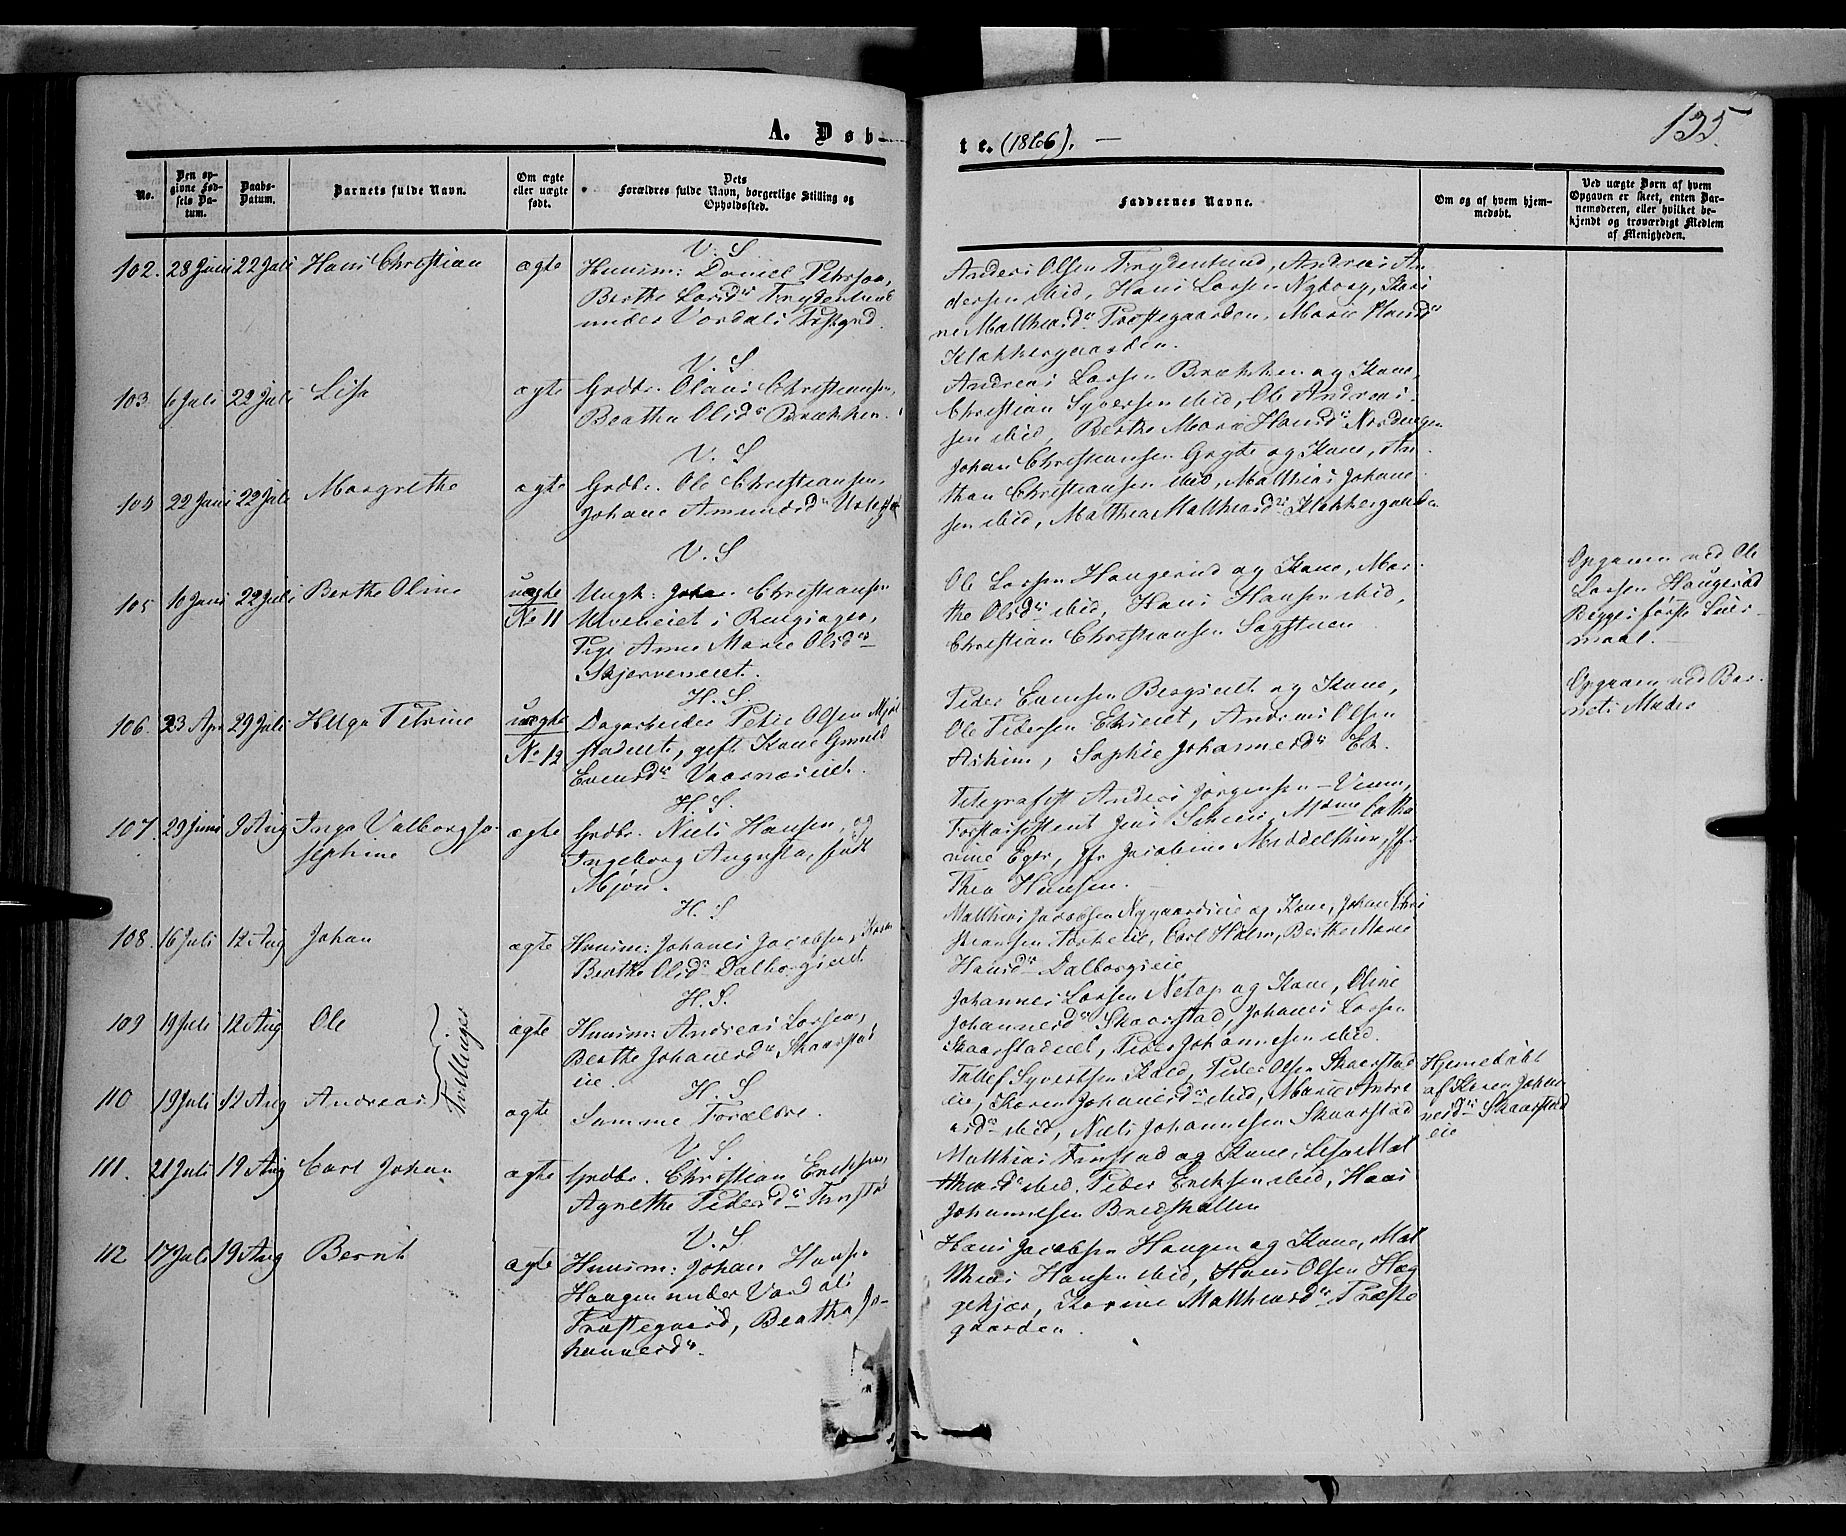 A. Døb-
te. (1866). —
135.
No.
Den op-
givne Fød-
sels Da-
tum.
Daabs-
Datum.
Barnets fulde Navn.
Om ægte
eller uægte
født.
Dets
Forældres fulde Navn, borgerlige Stilling og
Opholdssted.
Faddernes Navne.
Om og af hvem hjem-
medøbt.
Ved uægte Børn af hvem
Opgaven er skeet, enten Bar-
nemoderen, eller hvilket be-
kjendt og troværdigt Medlem
af Menigheden.
102. 28 Juni 22 Juli Hans Christian ægte
V. S
Huusm: Daniel Pedersen,
Berthe Larsdr Frydenlund
under Vardals Præstgrd.
Anders Olsen Frydenlund, Andreas An-
dersen ibid, Hans Larsen Nyborg, Kari-
ne Matthiasdr Præstegaarden, Marie Hansdr
Klokkergaarden.
103 6 Juli 22 Juli Lisa ægte
V. S
Grdbr. Olaus Christiansen,
Beathe Olsdr Brækken.
Andreas Larsen Brækken og Kone,
Christian Syversen ibid, Ole Andrea-
sen ibid, Berthe Marie Hansdr Nordengen
104 22 Juni 22 Juli Margrethe ægte
V. S
Grdbr. Ole Christiansen,
Johane Amundsdr
Johan Christiansen Gryte og Kone, An-
thon Christiansen ibid, Matthias Johan-
sen ibid, Matthea Matthiasdr Klokkergaarden
105 10 Juni 22 Juli Berthe Oline uægte
No 11
V. S
Ungk: Johan Christiansen
Ulveneiet i Ringsager,
Pige Anne Marie Olsdr
Skjerveneiet.
Ole Larsen Haugerud og Kone, Mar-
the Olsdr ibid, Hans Hansen ibid,
Christian Christiansen Sagstuen
Opgaven ved Ole
Larsen Haugerud
Begges første Leier-
maal.
106. 23 Apr 29 Juli Helga Petrine uægte
No 12
H. S
Dagarbeider Peter Olsen Mjøl-
stadeiet, gift Kone Gunild
Evensdr Vaarnæseiet.
Peder Evensen Bergseiet og Kone,
Ole Pedersen Ekeiet, Andreas Olsen
Askim, Sophie Johannesdr Ek.
Opgaven ved Bar-
nets Moder
107. 29 Juni 9 Aug Inga Valborg Jo-
sephine
ægte
H. S.
Grdbr. Niels Hansen, og
Ingeborg Augusta, født
Mjøen.
Telegrafist Anders Jørgensen
Forstassistent Jens Mme Catha-
rine Eger, Jfr Jacobine Middelthun, Jfr
Thea Hansen.
108. 16 Juli 12 Aug Johan ægte
H. S
Huusm: Johanes Jacobsen, Karen
Berthe Olsdr Dalborgseiet
Matthias Jacobsen Nygaardseie og Kone, Johan Chri-
stiansen Carl Holm, Berthe Marie
Hansdr Dalborgseie
109 19 Juli 12 Aug Ole
Tvillinger
ægte
H. S.
Huusm: Andreas Larsen,
Berthe Johanesdr Skaarstad
eie.
Johannes Larsen Netop og Kone, Oline
Johannesdr Skaarstad, Johanes Larsen
Skaarstadeiet, Peder Johannesen ibid.
110 19 Juli 12 Aug Andreas ægte
H. S
Samme Forældre.
Tollef Syvertsen ibid, Peder Olsen Skaarstad
eie, Karen Johanesdr ibid, Marie Andre-
asdr ibid, Niels Johannesen Skaarstad
Hjemedøbt
af Karen Johan-
nesdr Skaarstad
eie
111. 21 Juli 19 Aug Carl Johan ægte
V. S.
Grdbr. Christian Eriksen,
Agnethe Pedersdr
Matthias og Kone, Lisa Mat-
thiasdr ibid. Peder Eriksen ibid, Hans
Johannesen
112 17 Juli 19 Aug Bernt ægte
V. S
Huusm: Johan Hansen
Haugen under Vardals
Præstegaard, Beathe Jo-
hannesdr.
Hans Jacobsen Haugen og Kone, Mat-
thias Hansen ibid, Hans Olsen Hæg-
gekjær, Karine Matthiasdr Præste-
gaarden.